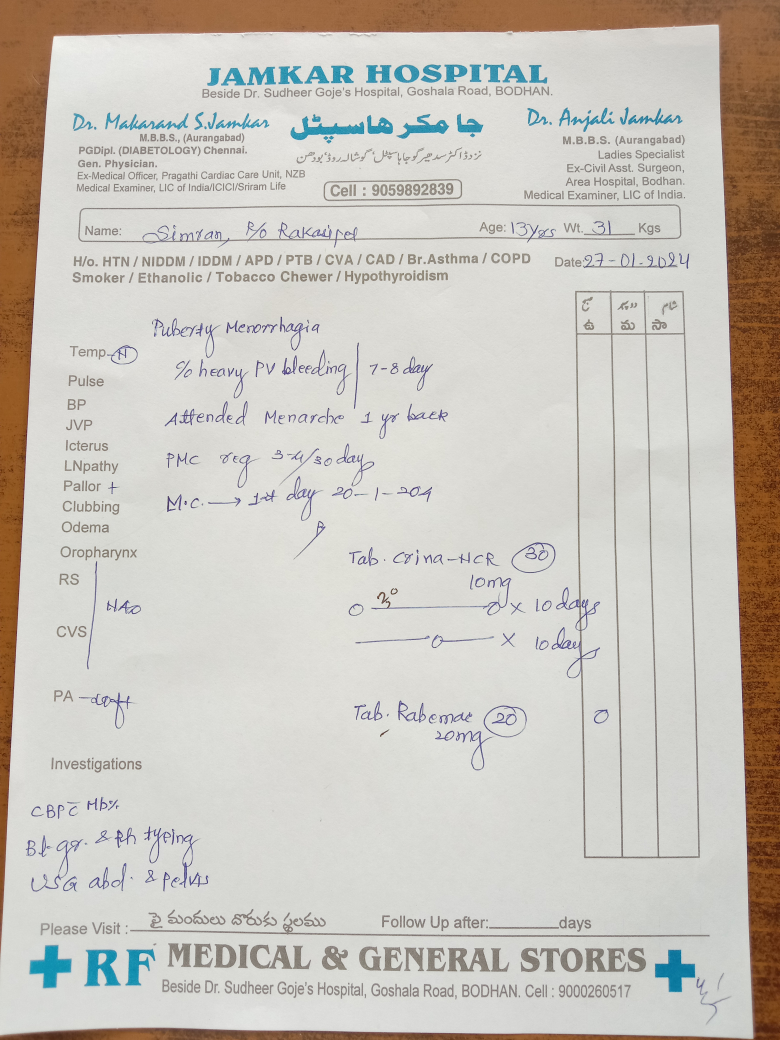 JAMKAR HOSPITAL
Beside Dr. Sudheer Goje's Hospital, Goshala Road, BODHAN.
Dr. Makarand S.Jamkar
M.B.B.S., (Aurangabad)
PGDipl. (DIABETOLOGY) Chennai.
Gen. Physician.
Ex-Medical Officer, Pragathi Cardiac Care Unit, NZB
Medical Examiner, LIC of India/ICICI/Sriram Life
جامکر هاسپٹل
نزد ڈاکٹر سدھیر گوجا ہاسپٹل، گوشالہ روڈ، بودھن
Cell : 9059892839
Dr. Anjali Jamkar
M.B.B.S. (Aurangabad)
Ladies Specialist
Ex-Civil Asst. Surgeon,
Area Hospital, Bodhan.
Medical Examiner, LIC of India.
Name: Simran, R/o Rakasipel Age: 13yrs Wt. 31 Kgs
H/o. HTN / NIDDM / IDDM / APD / PTB / CVA / CAD / Br.Asthma / COPD
Smoker / Ethanolic / Tobacco Chewer / Hypothyroidism
Date: 27-01-2024
صبح دوپہر شام
ఉ మ సా
Puberty Menorrhagia
Temp-N
c/o heavy PV bleeding 7-8 day
Pulse
BP
Attended Menarche 1 yr back
JVP
Icterus
LNpathy
PMC reg 3-4/30 day
Pallor +
Clubbing
M.C. → 1st day 20-1-204
Odema
Oropharynx
Tab. Crina-NCR 30
10mg
RS
NAD
x 10 days
CVS
x 10 days
PA - soft
Tab. Rabemac 20
20mg
Investigations
CBP c̄ Hb%
Bl. gr. & Rh typing
USG abd. & pelvis
Please Visit : పై మందులు దొరుకు స్థలము Follow Up after: days
RF MEDICAL & GENERAL STORES
Beside Dr. Sudheer Goje's Hospital, Goshala Road, BODHAN. Cell : 9000260517